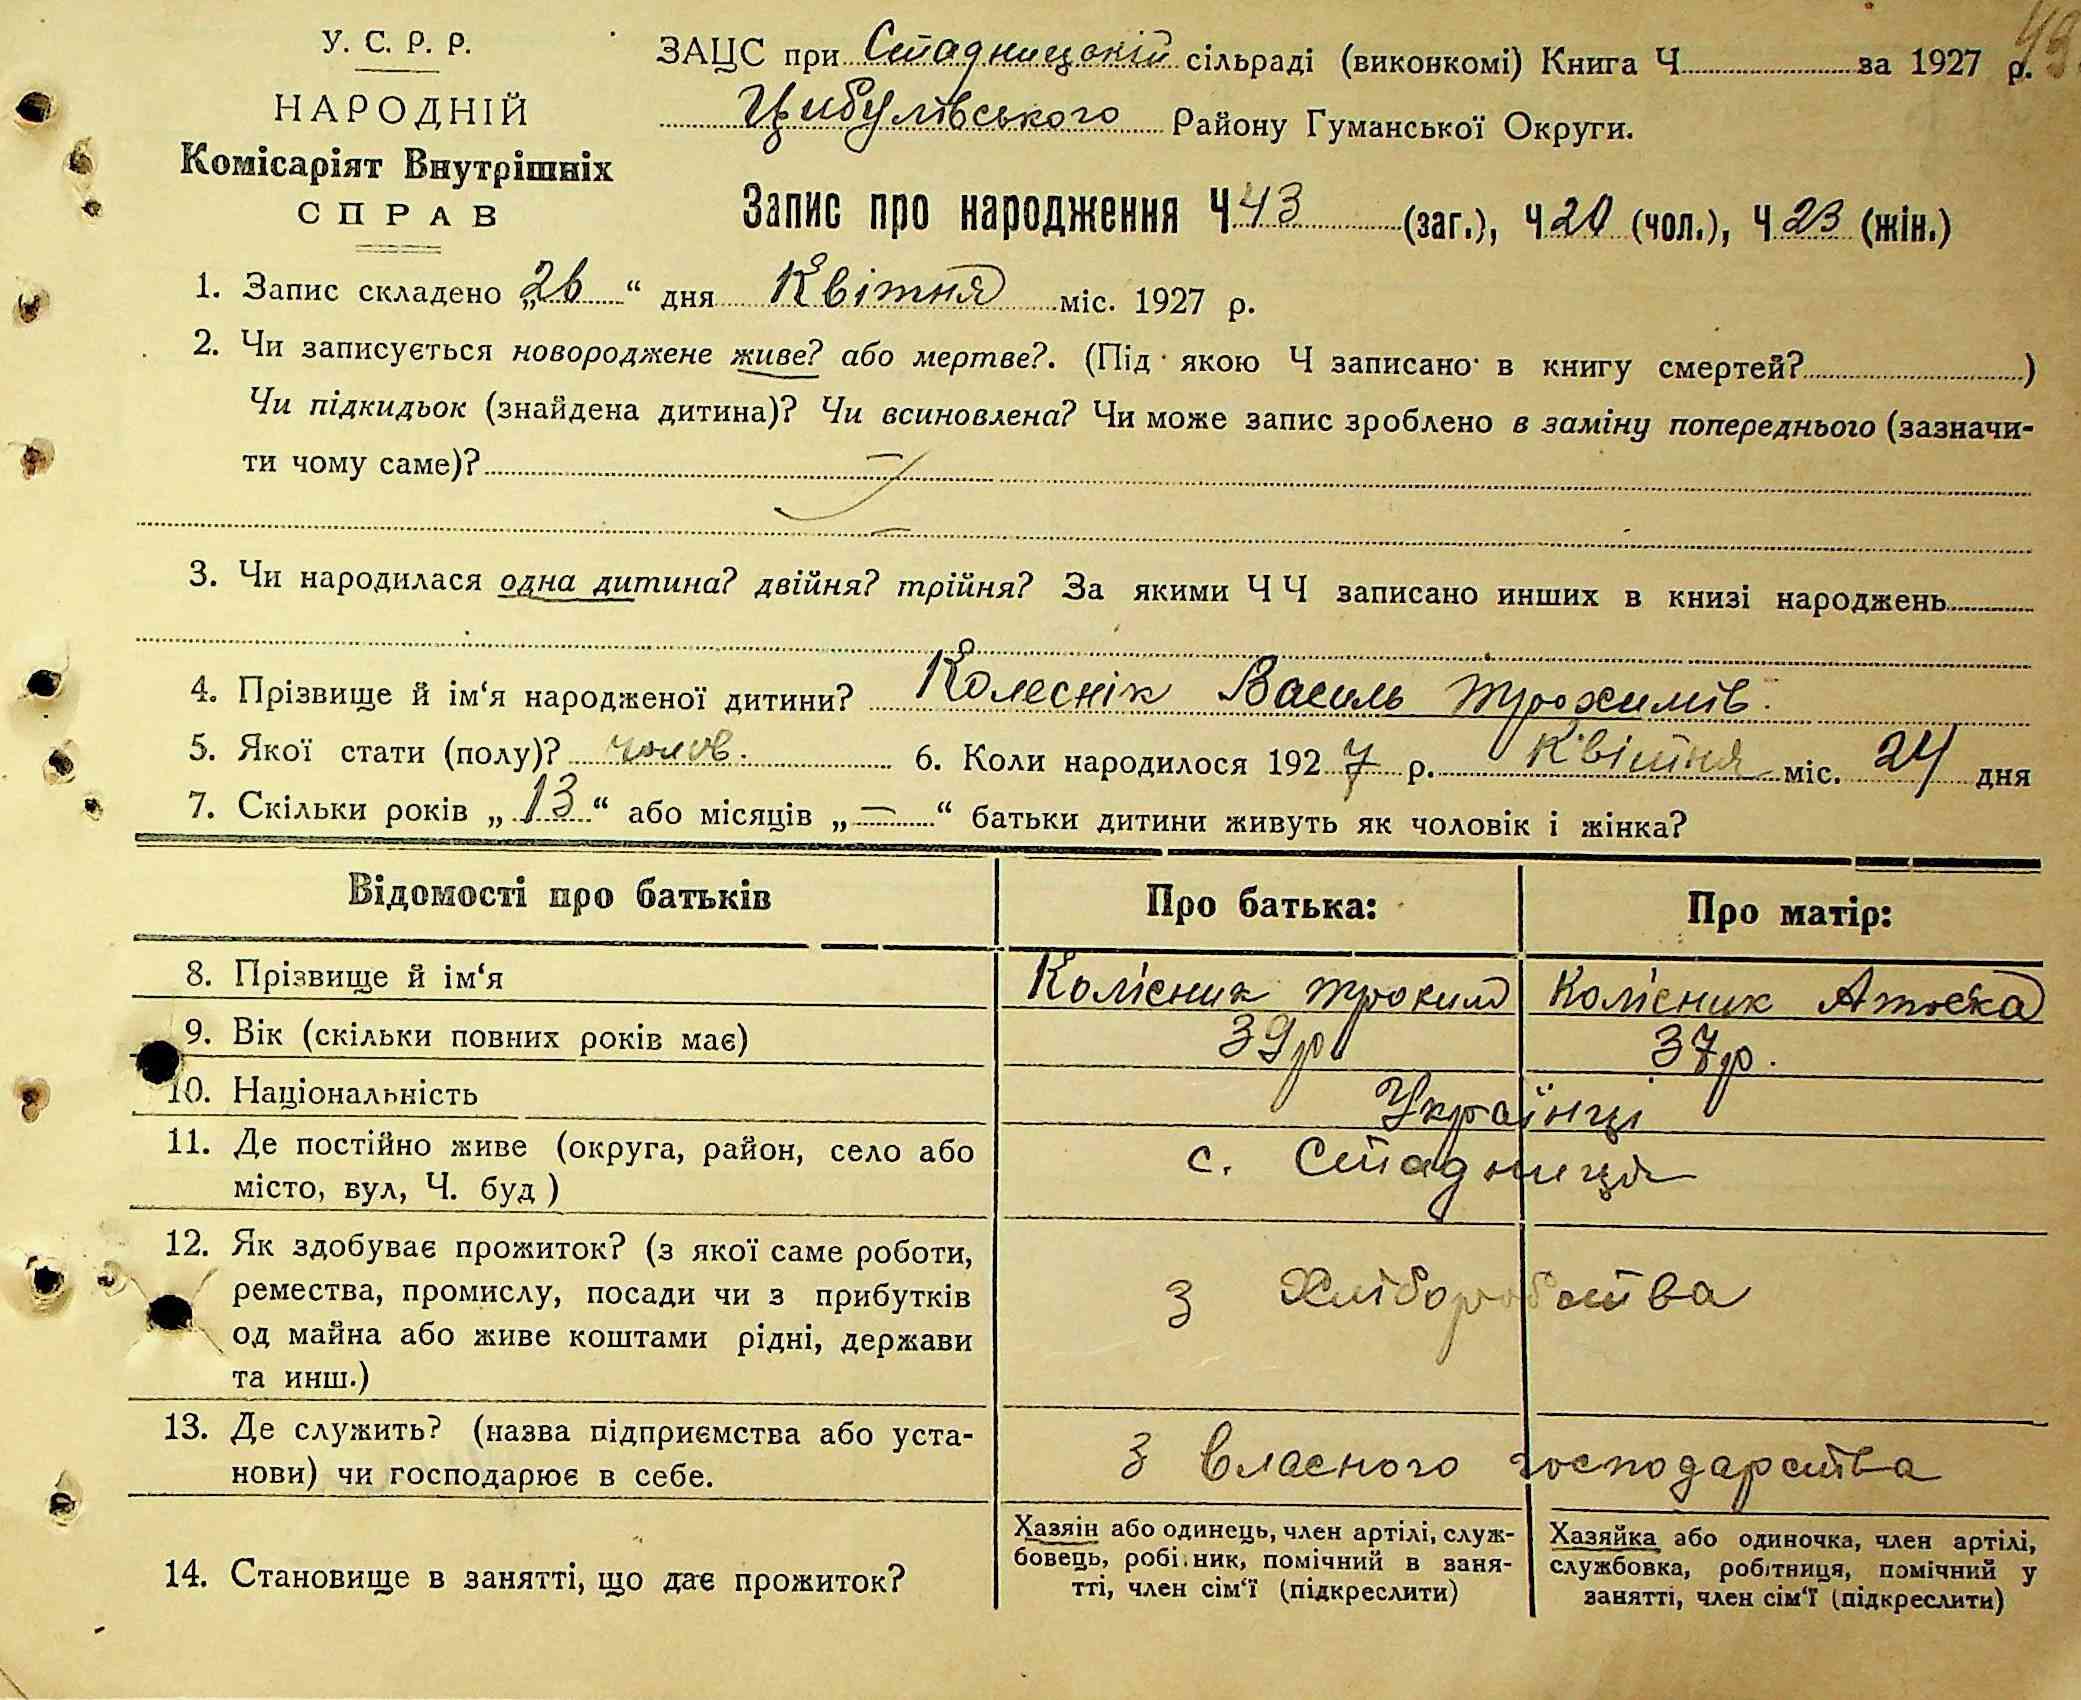 49.
У. С. Р. Р.
НАРОДНІЙ
Комісаріят Внутрішніх
СПРАВ
ЗАЦС при Стадницькій сільраді (виконкомі) Книга Ч за 1927 р.
Цибулівського Району Гуманської Округи.
Запис про народження Ч 43 (заг.), Ч 20 (чол.), Ч 23 (жін.)
1. Запис складено „26“ дня Квітня міс. 1927 р.
2. Чи записується новороджене живе? або мертве?. (Під якою Ч записано в книгу смертей? )
Чи підкидьок (знайдена дитина)? Чи всиновлена? Чи може запис зроблено в заміну попереднього (зазначи-
ти чому саме)?
3. Чи народилася одна дитина? двійня? трійня? За якими Ч Ч записано инших в книзі народжень
4. Прізвище й ім‘я народженої дитини? Колеснік Василь Трохимів.
5. Якої стати (полу)? чолов. 6. Коли народилося 1927 р. Квітня міс. 24 дня
7. Скільки років „13“ або місяців „—“ батьки дитини живуть як чоловік і жінка?
Відомості про батьків Про батька: Про матір:
8. Прізвище й ім‘я Колісник Трохим Колісник
9. Вік (скільки повних років має) 39 р. 37 р.
10. Національність Українці
11. Де постійно живе (округа, район, село або
місто, вул, Ч. буд ) с. Стадниця
12. Як здобуває прожиток? (з якої саме роботи,
ремества, промислу, посади чи з прибутків
од майна або живе коштами рідні, держави
та инш.) З Хліборобства
13. Де служить? (назва підприємства або уста-
нови) чи господарює в себе. З власного господарства
14. Становище в занятті, що дає прожиток?
Хазяін або одинець, член артілі, служ-
бовець, робі.ник, помічний в заня-
тті, член сім‘ї (підкреслити)
Хазяйка або одиночка, член артілі,
службовка, робітниця, помічний у
занятті, член сім‘ї (підкреслити)